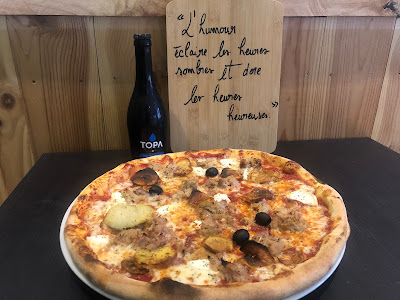 "L'humour
éclaire les heures
sombres et dore
les heures
heureuses."
TOPA